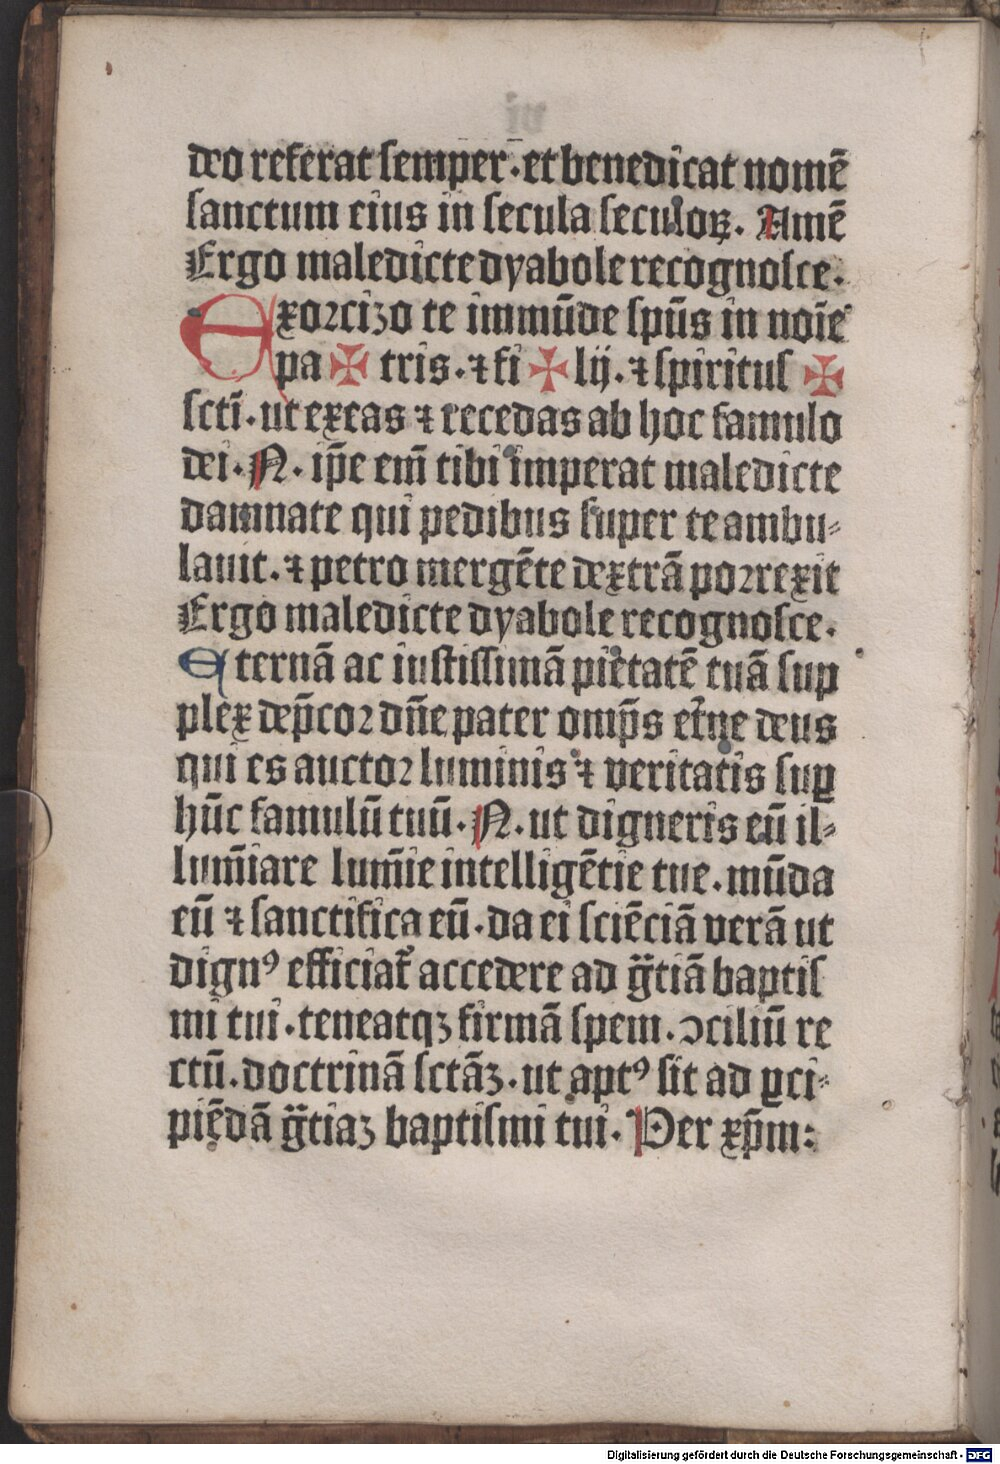 deo referat semper. et benedicat nomē
sanctum eius in secula seculoꝝ. Amē
Ergo maledicte dyabole recognosce.
Exorcizo te immūde spūs in noīe
pa ✠ tris. ⁊ fi ✠ lij. ⁊ spiritus ✠
sctī. ut exeas ⁊ recedas ab hoc famulo
dei. N. ip̄e em̄ tibi imperat maledicte
damnate qui pedibus super te ambu⸗
lauit. ⁊ petro mergēte dextrā porrexit
Ergo maledicte dyabole recognosce.
Eternā ac iustissimā pietatē tuā sup
plex dep̄cor dn̄e pater omp̄s et̄ne deus
qui es auctor luminis ⁊ veritatis suꝑ
hūc famulū tuū. N. ut digneris eū il⸗
lum̄iare lum̄ie intelligētie tue. mūda
eū ⁊ sanctifica eū. da ei sciēciā verā ut
dignꝰ efficiat᷑ accedere ad gr̄tiā baptis
mi tui. teneatqꝫ firmā spem. ↄciliū re
ctū. doctrinā sctāꝫ. ut aptꝰ sit ad ꝑci⸗
piēdā gr̄tiaꝫ baptismi tui. Per xp̄m:
Digitalisierung gefördert durch die Deutsche Forschungsgemeinschaft - DFG